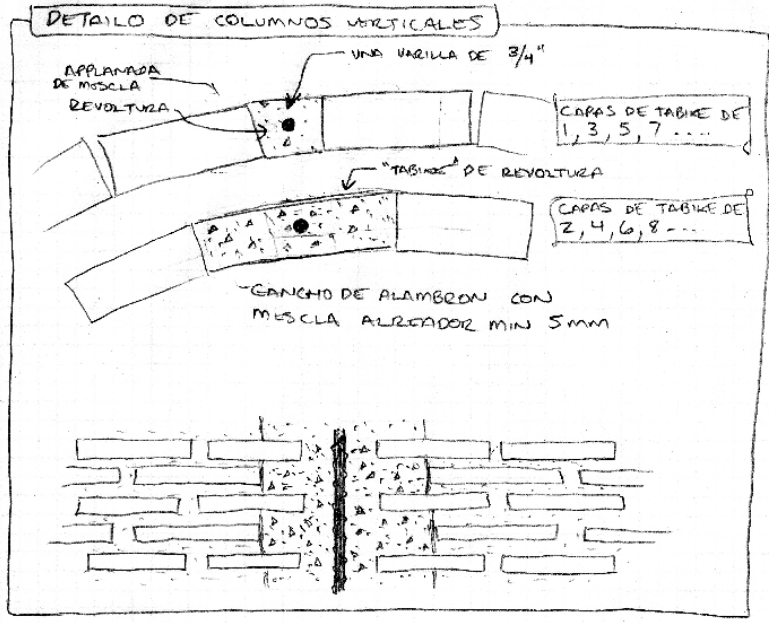 DETAILO DE COLUMNOS VERTICALES
UNA VARILLA DE 3/4"
APPLANADA
DE MOSCLA
REVOLTURA
CAPAS DE TABIKE DE
1, 3, 5, 7 ....
"TABIKE" DE REVOLTURA
CAPAS DE TABIKE DE
2, 4, 6, 8 ....
-GANCHO DE ALAMBRON CON
MESCLA ALREADOR MIN 5mm